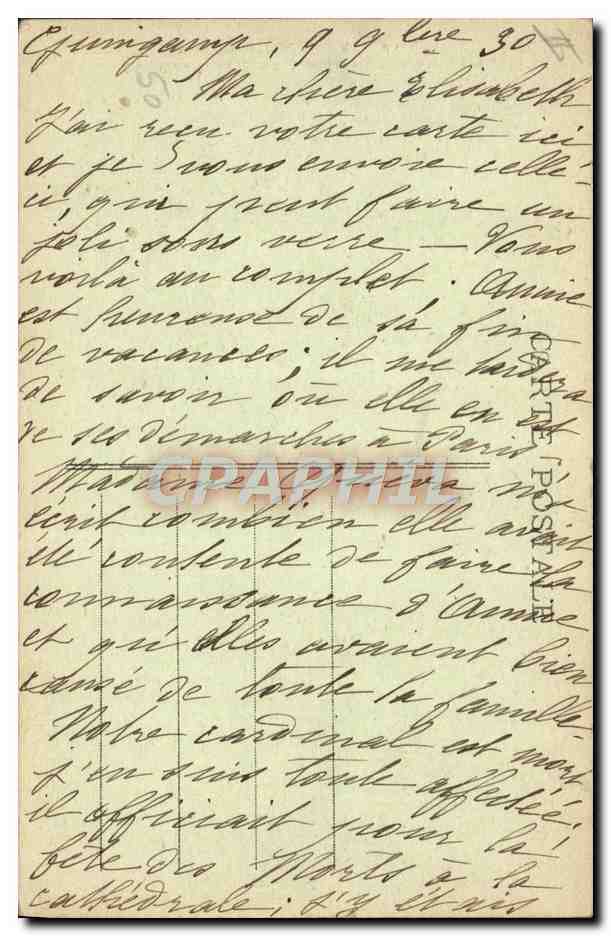 Guingamp, 9 9bre 30
50
Ma chère Elisabeth
J'ai reçu votre carte ici
et je vous envoie celle-
ci, qui peut faire un
joli sous verre – Vous
voilà au complet. Annie
est heureuse de sa fin
de vacances; il me tardera
de savoir où elle en est
de ses démarches à Paris
Madame m'a
écrit combien elle avait
été contente de faire la
connaissance d'Annie
et qu'elles avaient bien
causé de toute la famille-
Notre cardinal est mort
j'en suis toute affectée;
il officiait pour la
fête des Morts à la
cathédrale; j'y étais
CARTE POSTALE
CPAPHIL